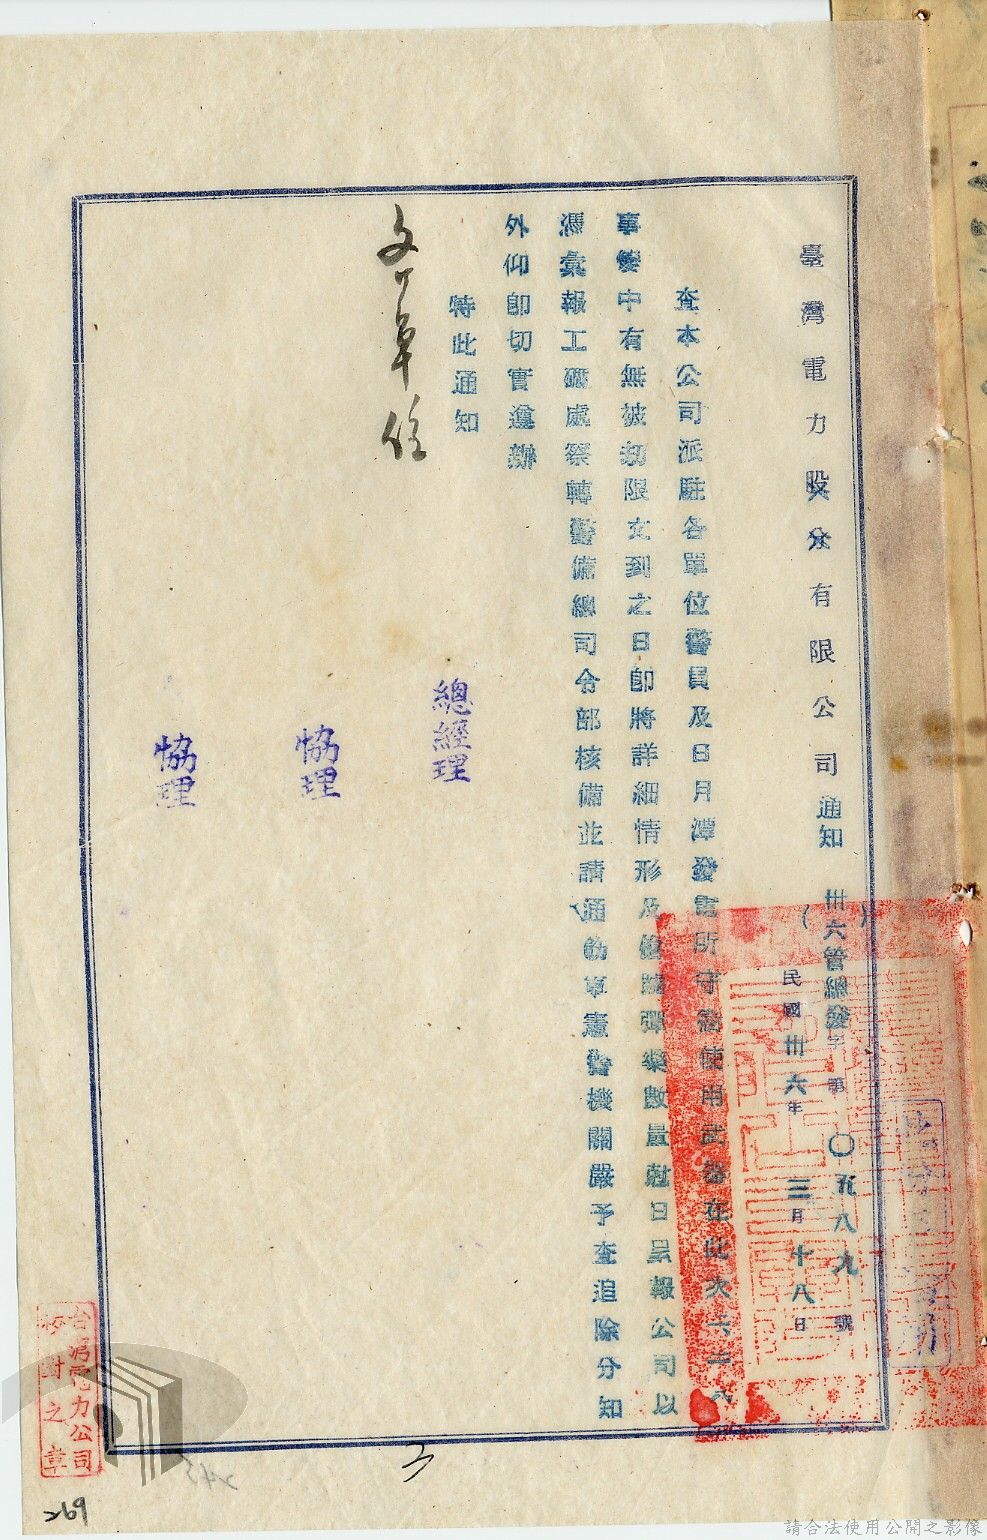 臺灣電力股份有限公司通知
卅六管總發字第〇五八九號
民國卅六年三月十八日
查本公司派駐各單位警員及日月潭發電所守衛使用武器在此次二二八
事變中有無被劫限文到之日卽將詳細情形及槍械彈藥數量尅日呈報公司以
憑彙報工礦處察轉警備總司令部核備並請通飭軍憲警機關嚴予查追除分知
外仰卽切實遵辦
特此通知
總經理
協理
協理
台灣電力公司
校對之章
269
請合法使用公開之影像